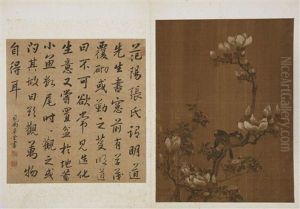 范陽張氏記明道
先生書窗前有草茂
覆砌或勸之芟明道
曰不可欲常見造化
生意又嘗置盆池蓄
小魚數尾時觀之或
問其故曰欲觀萬物
自得耳